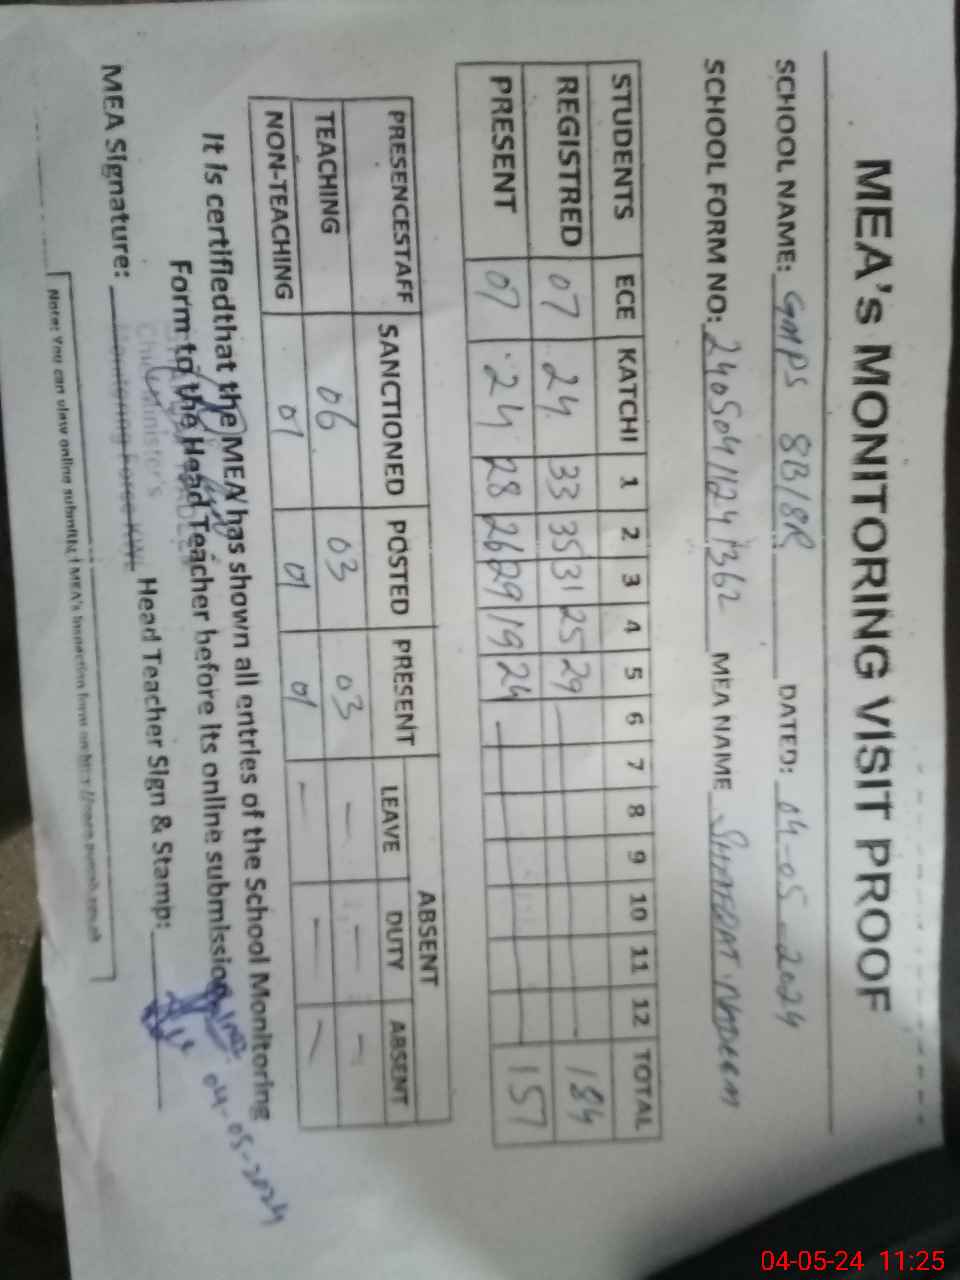 MEA's MONITORING VISIT PROOF
SCHOOL NAME: GMPS 8B/8R DATED: 04-05-2024
SCHOOL FORM NO: 24050411241362 MEA NAME SHAFQAT NADEEM
STUDENTS ECE KATCHI 1 2 3 4 5 6 7 8 9 10 11 12 TOTAL
REGISTRED 07 24 33 35 31 25 29 184
PRESENT 07 24 28 26 29 19 24 157
PRESENCESTAFF SANCTIONED POSTED PRESENT ABSENT
LEAVE DUTY ABSENT
TEACHING 06 03 03 — — —
NON-TEACHING 01 01 01 — — —
It is certifiedthat the MEA has shown all entries of the School Monitoring
Form to the Head Teacher before its online submission.
04-05-2024
MEA Signature: Head Teacher Sign & Stamp:
Chief Minister's
Monitoring Force KWL
Note: You can view online submitt
04-05-24 11:25